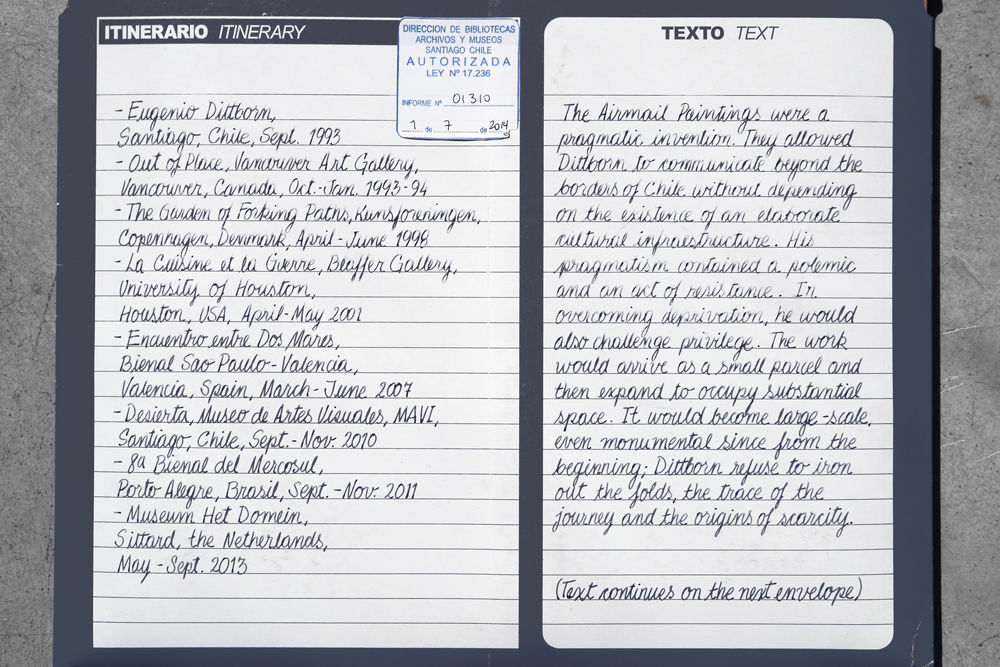 ITINERARIO ITINERARY
DIRECCION DE BIBLIOTECAS
ARCHIVOS Y MUSEOS
SANTIAGO CHILE
AUTORIZADA
LEY Nº 17.236
INFORME Nº 01310
1 de 7 de 2014
- Eugenio Dittborn,
Santiago, Chile, Sept. 1993
- Out of Place, Vancouver Art Gallery,
Vancouver, Canada, Oct.-Jan. 1993-94
- The Garden of Forking Paths, Kunsforeningen,
Copenhagen, Denmark, April-June 1998
- La Cuisine et la Guerre, Blaffer Gallery,
University of Houston,
Houston, USA, April-May 2001
- Encuentro entre Dos Mares,
Bienal Sao Paulo-Valencia,
Valencia, Spain, March-June 2007
- Desierta, Museo de Artes Visuales, MAVI,
Santiago, Chile, Sept.-Nov. 2010
- 8a Bienal del Mercosul,
Porto Alegre, Brasil, Sept.-Nov. 2011
- Museum Het Domein,
Sittard, the Netherlands,
May-Sept. 2013
TEXTO TEXT
The Airmail Paintings were a
pragmatic invention. They allowed
Dittborn to communicate beyond the
borders of Chile without depending
on the existence of an elaborate
cultural infraestructure. His
pragmatism contained a polemic
and an act of resistance. In
overcoming deprivation, he would
also challenge privilege. The work
would arrive as a small parcel and
then expand to occupy substantial
space. It would become large-scale,
even monumental since from the
beginning; Dittborn refuse to iron
out the folds, the trace of the
journey and the origins of scarcity.
(Text continues on the next envelope)